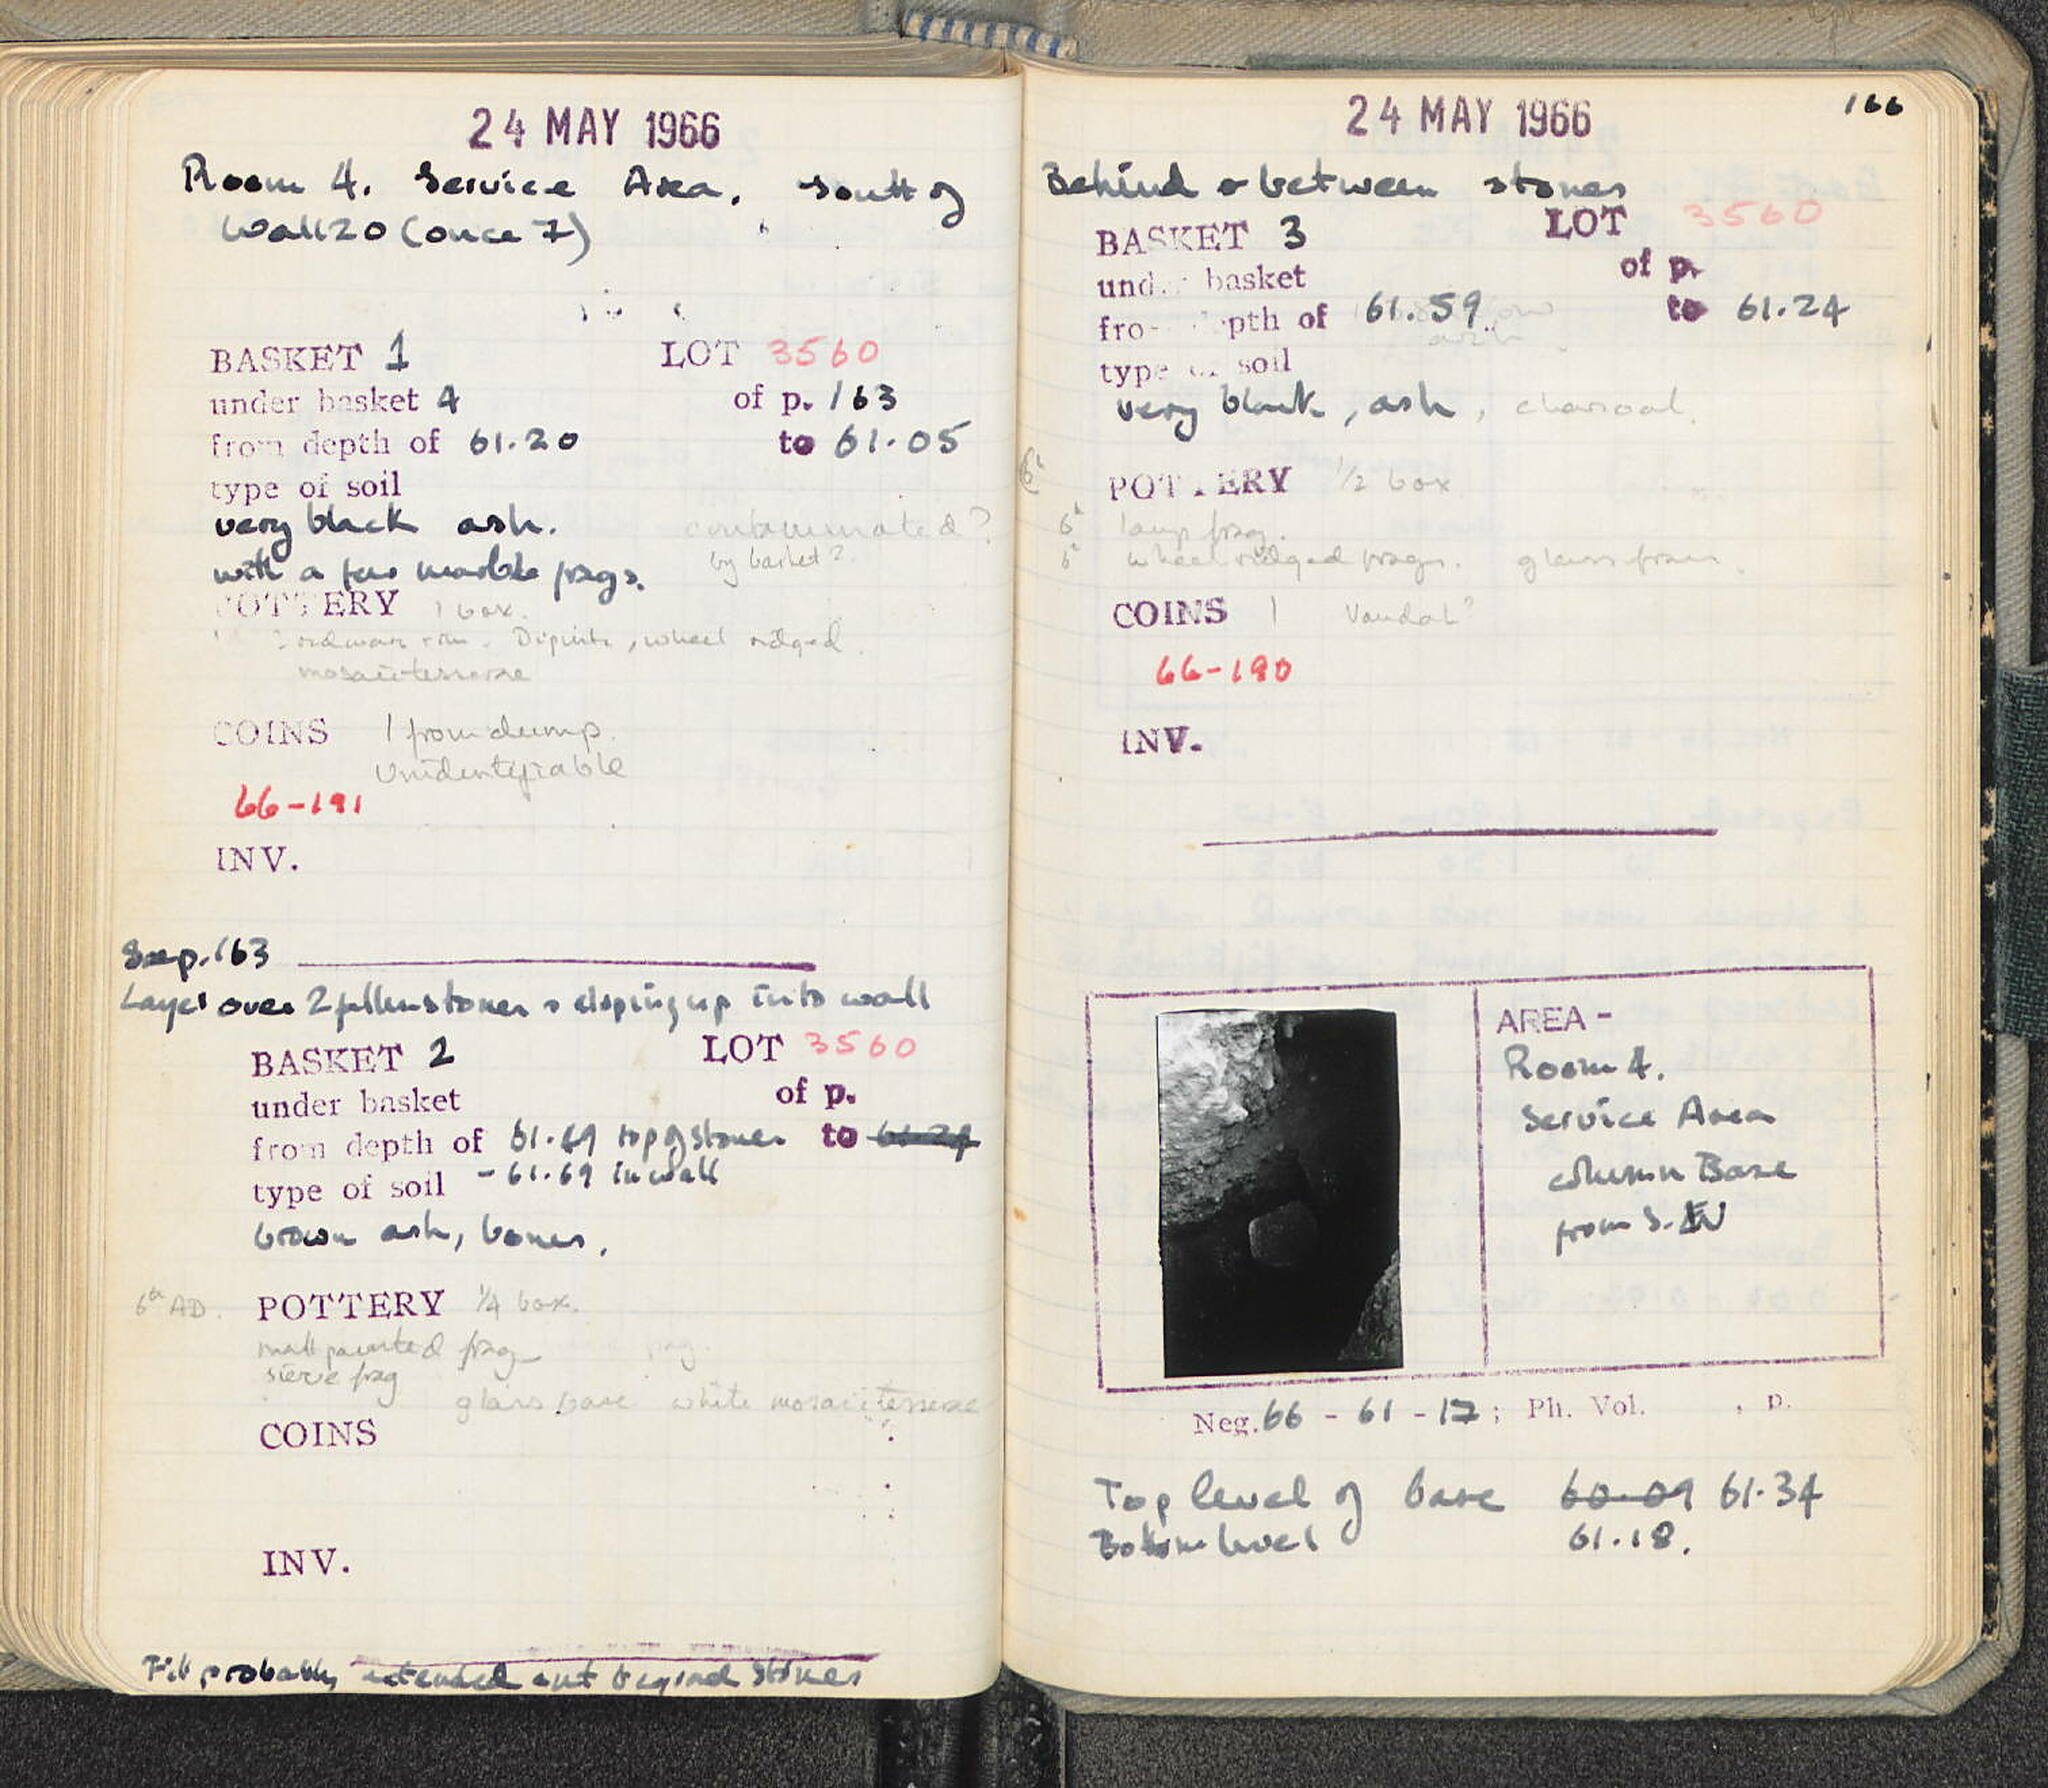 24 MAY 1966
Room 4. Service Area. South of
Wall 20 (once 7)
BASKET 1 LOT 3560
under basket 4 of p. 163
from depth of 61.20 to 61.05
type of soil
very black ash. contaminated?
with a few marble frags. by basket?
POTTERY 1 box.
rim. Dipinto, wheel ridged.
mosaic tesserae
COINS 1 from dump.
Unidentifiable
66-191
INV.
See p. 163
Layer over 2 fallen stones & sloping up into wall
BASKET 2 LOT 3560
under basket of p.
from depth of 61.49 top of stones to
type of soil - 61.69 in wall
brown ash, bones.
6th AD. POTTERY 1/4 box.
matt painted frag
sieve frag
glass base white mosaic tesserae
COINS
INV.
Fill probably extended out beyond stones
24 MAY 1966 166
Behind & between stones
BASKET 3 LOT 3560
under basket of p.
from depth of 61.59 to 61.24
type of soil
very black, ash, charcoal.
POTTERY 1/2 box
lamp frag.
wheel ridged frags. glass frags.
COINS 1 Vandal?
66-190
INV.
AREA -
Room 4.
Service Area
column Base
from S.W
Neg. 66 - 61 - 17; Ph. Vol. , p.
Top level of base 60.09 61.34
Bottom level 61.18.